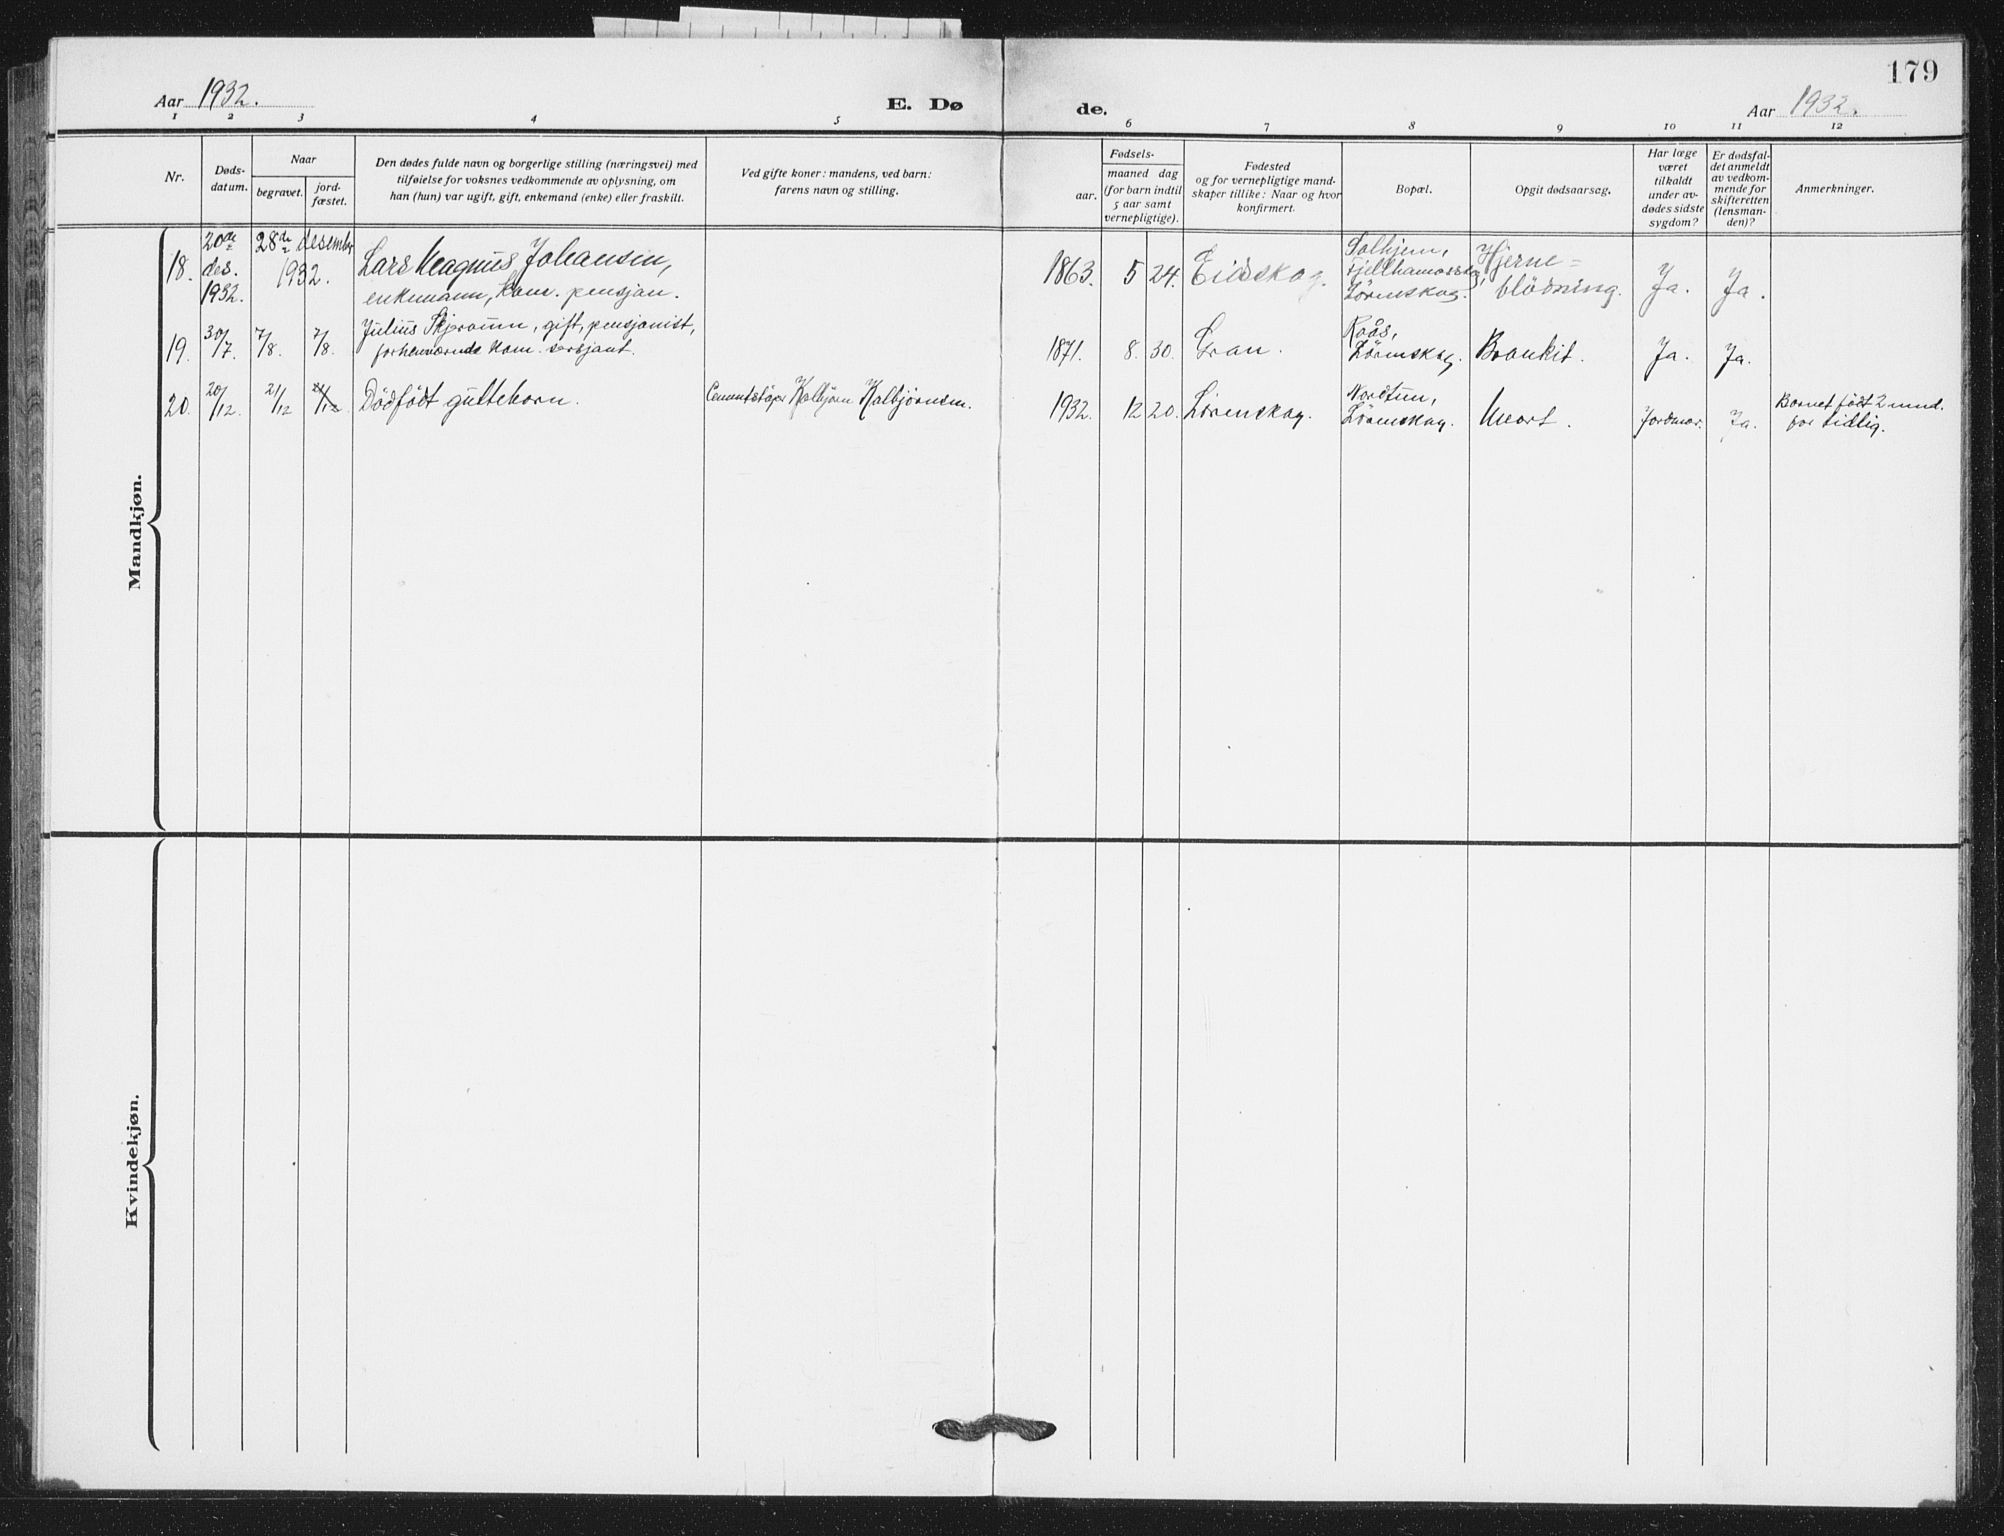 179
Aar 1932.
E. Dø
de.
Aar 1932.
1 2 3 4 5 6 7 8 9 10 11 12
Nr.
Døds-
datum.
Naar
begravet.
jord-
fæstet.
Den dødes fulde navn og borgerlige stilling (næringsvei) med
tilføielse for voksnes vedkommende av oplysning, om
han (hun) var ugift, gift, enkemand (enke) eller fraskilt.
Ved gifte koner: mandens, ved barn:
farens navn og stilling.
aar.
Fødsels-
maaned dag
(for barn indtil
5 aar samt
vernepligtige).
Fødested
og for vernepligtige mand-
skaper tillike: Naar og hvor
konfirmert.
Bopæl.
Opgit dødsaarsag.
Har læge
været
tilkaldt
under av-
dødes sidste
sygdom?
Er dødsfal-
det anmeldt
av vedkom-
mende for
skifteretten
(lensman-
den)?
Anmerkninger.
Mandkjøn.
18.
20de
des.
1932.
28de desember
1932.
Lars Magnus Johansen,
enkemann, kom. pensjon.
1863. 5 24. Eidskog.
Solhjem,
Lörenskog.
Hjerne=
blödning.
Ja. Ja.
19. 30/7. 7/8. 7/8.
Julius gift, pensjonist,
forhenværende kom. sersjant.
1871. 8. 30. Gran.
Lörenskog.
Ja. Ja.
20. 20/12 21/12
Dödfödt guttebarn.
Cementstöper Kolbjörn Kolbjörnsen.
1932. 12 20. Lörenskog.
Nordtun,
Lörenskog.
Jordmor. Ja.
Barnet födt 2 mnd.
for tidlig.
Kvindekjøn.